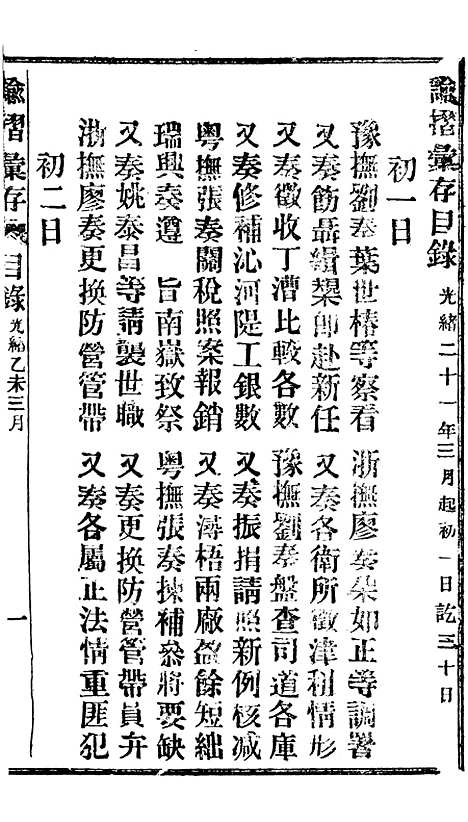 諭摺彙存目錄 光緒二十一年三月起初一日訖三十日
初一日
豫撫劉奏葉世椿等察看 浙撫廖奏朱如正等調署
又奏飭聶緝槼卽赴新任 又奏各衛所徵津租情形
又奏徵收丁漕比較各數 豫撫劉奏盤查司道各庫
又奏修補沁河隄工銀數 又奏振捐請照新例核减
粤撫張奏關稅照案報銷 又奏潯梧兩廠盈餘短絀
瑞興奏遵 旨南嶽致祭 粤撫張奏揀補叅將要缺
又奏姚泰昌等請襲世職 又奏更换防營管帶員弁
浙撫廖奏更換防營管帶 又奏各屬正法情重匪犯
初二日
諭摺彙存 目錄 光緒乙未三月 一